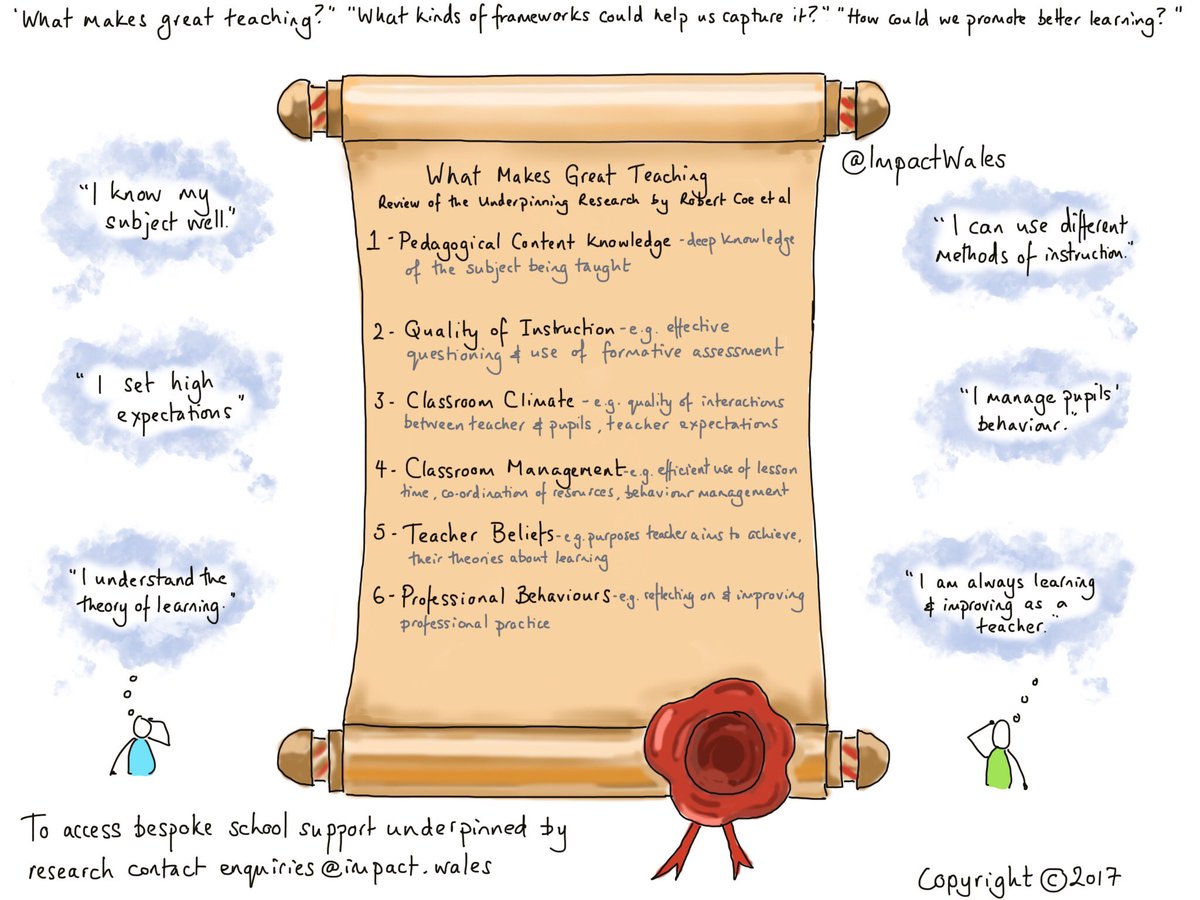 'What makes great teaching?" "What kinds of frameworks could help us capture it?" "How could we promote better learning?"
@ImpactWales
What Makes Great Teaching
Review of the Underpinning Research by Robert Coe et al
1 - Pedagogical Content Knowledge - deep knowledge
of the subject being taught
2 - Quality of Instruction - e.g. effective
questioning & use of formative assessment
3 - Classroom Climate - e.g. quality of interactions
between teacher & pupils, teacher expectations
4 - Classroom Management - e.g. efficient use of lesson
time, co-ordination of resources, behaviour management
5 - Teacher Beliefs - e.g. purposes teacher aims to achieve,
their theories about learning
6 - Professional Behaviours - e.g. reflecting on & improving
professional practice
"I know my
subject well."
"I set high
expectations"
"I understand the
theory of learning."
"I can use different
methods of instruction."
"I manage pupils'
behaviour."
"I am always learning
& improving as a
teacher."
To access bespoke school support underpinned by
research contact enquiries@impact.wales
Copyright © 2017